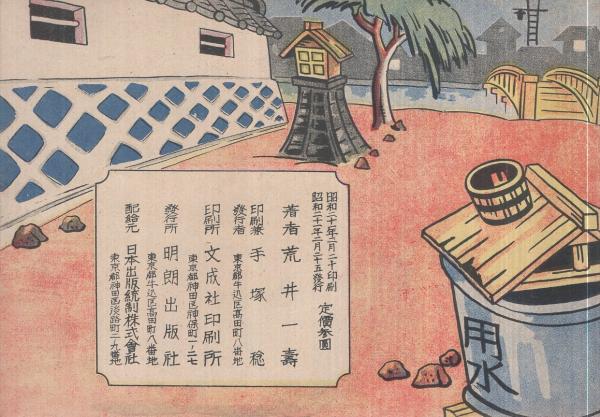 昭和二十一年二月二十印刷
昭和二十一年二月二十五発行
定價参圓
著者 荒井一壽
印刷兼
發行者 手塚稔
東京都牛込区高田町八番地
印刷所 文成社印刷所
東京都神田区神保町一ノ二七
發行所 明朗出版社
東京都牛込区高田町八番地
配給元 日本出版統制株式會社
東京都神田区淡路町二ノ九番地
用水